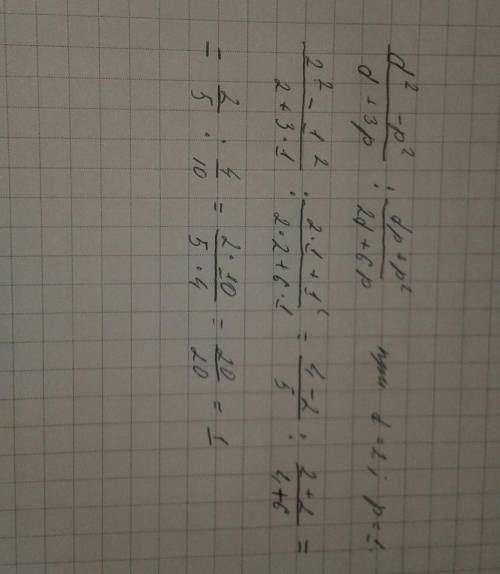 (d² - p²)/(d + 3p) : (dp + p²)/(2d + 6p) при d = 2; p = 1.
(2² - 1²)/(2 + 3·1) : (2·1 + 1²)/(2·2 + 6·1) = (4 - 2)/5 : (2 + 2)/(4 + 6) =
= 2/5 : 4/10 = (2·10)/(5·4) = 20/20 = 1